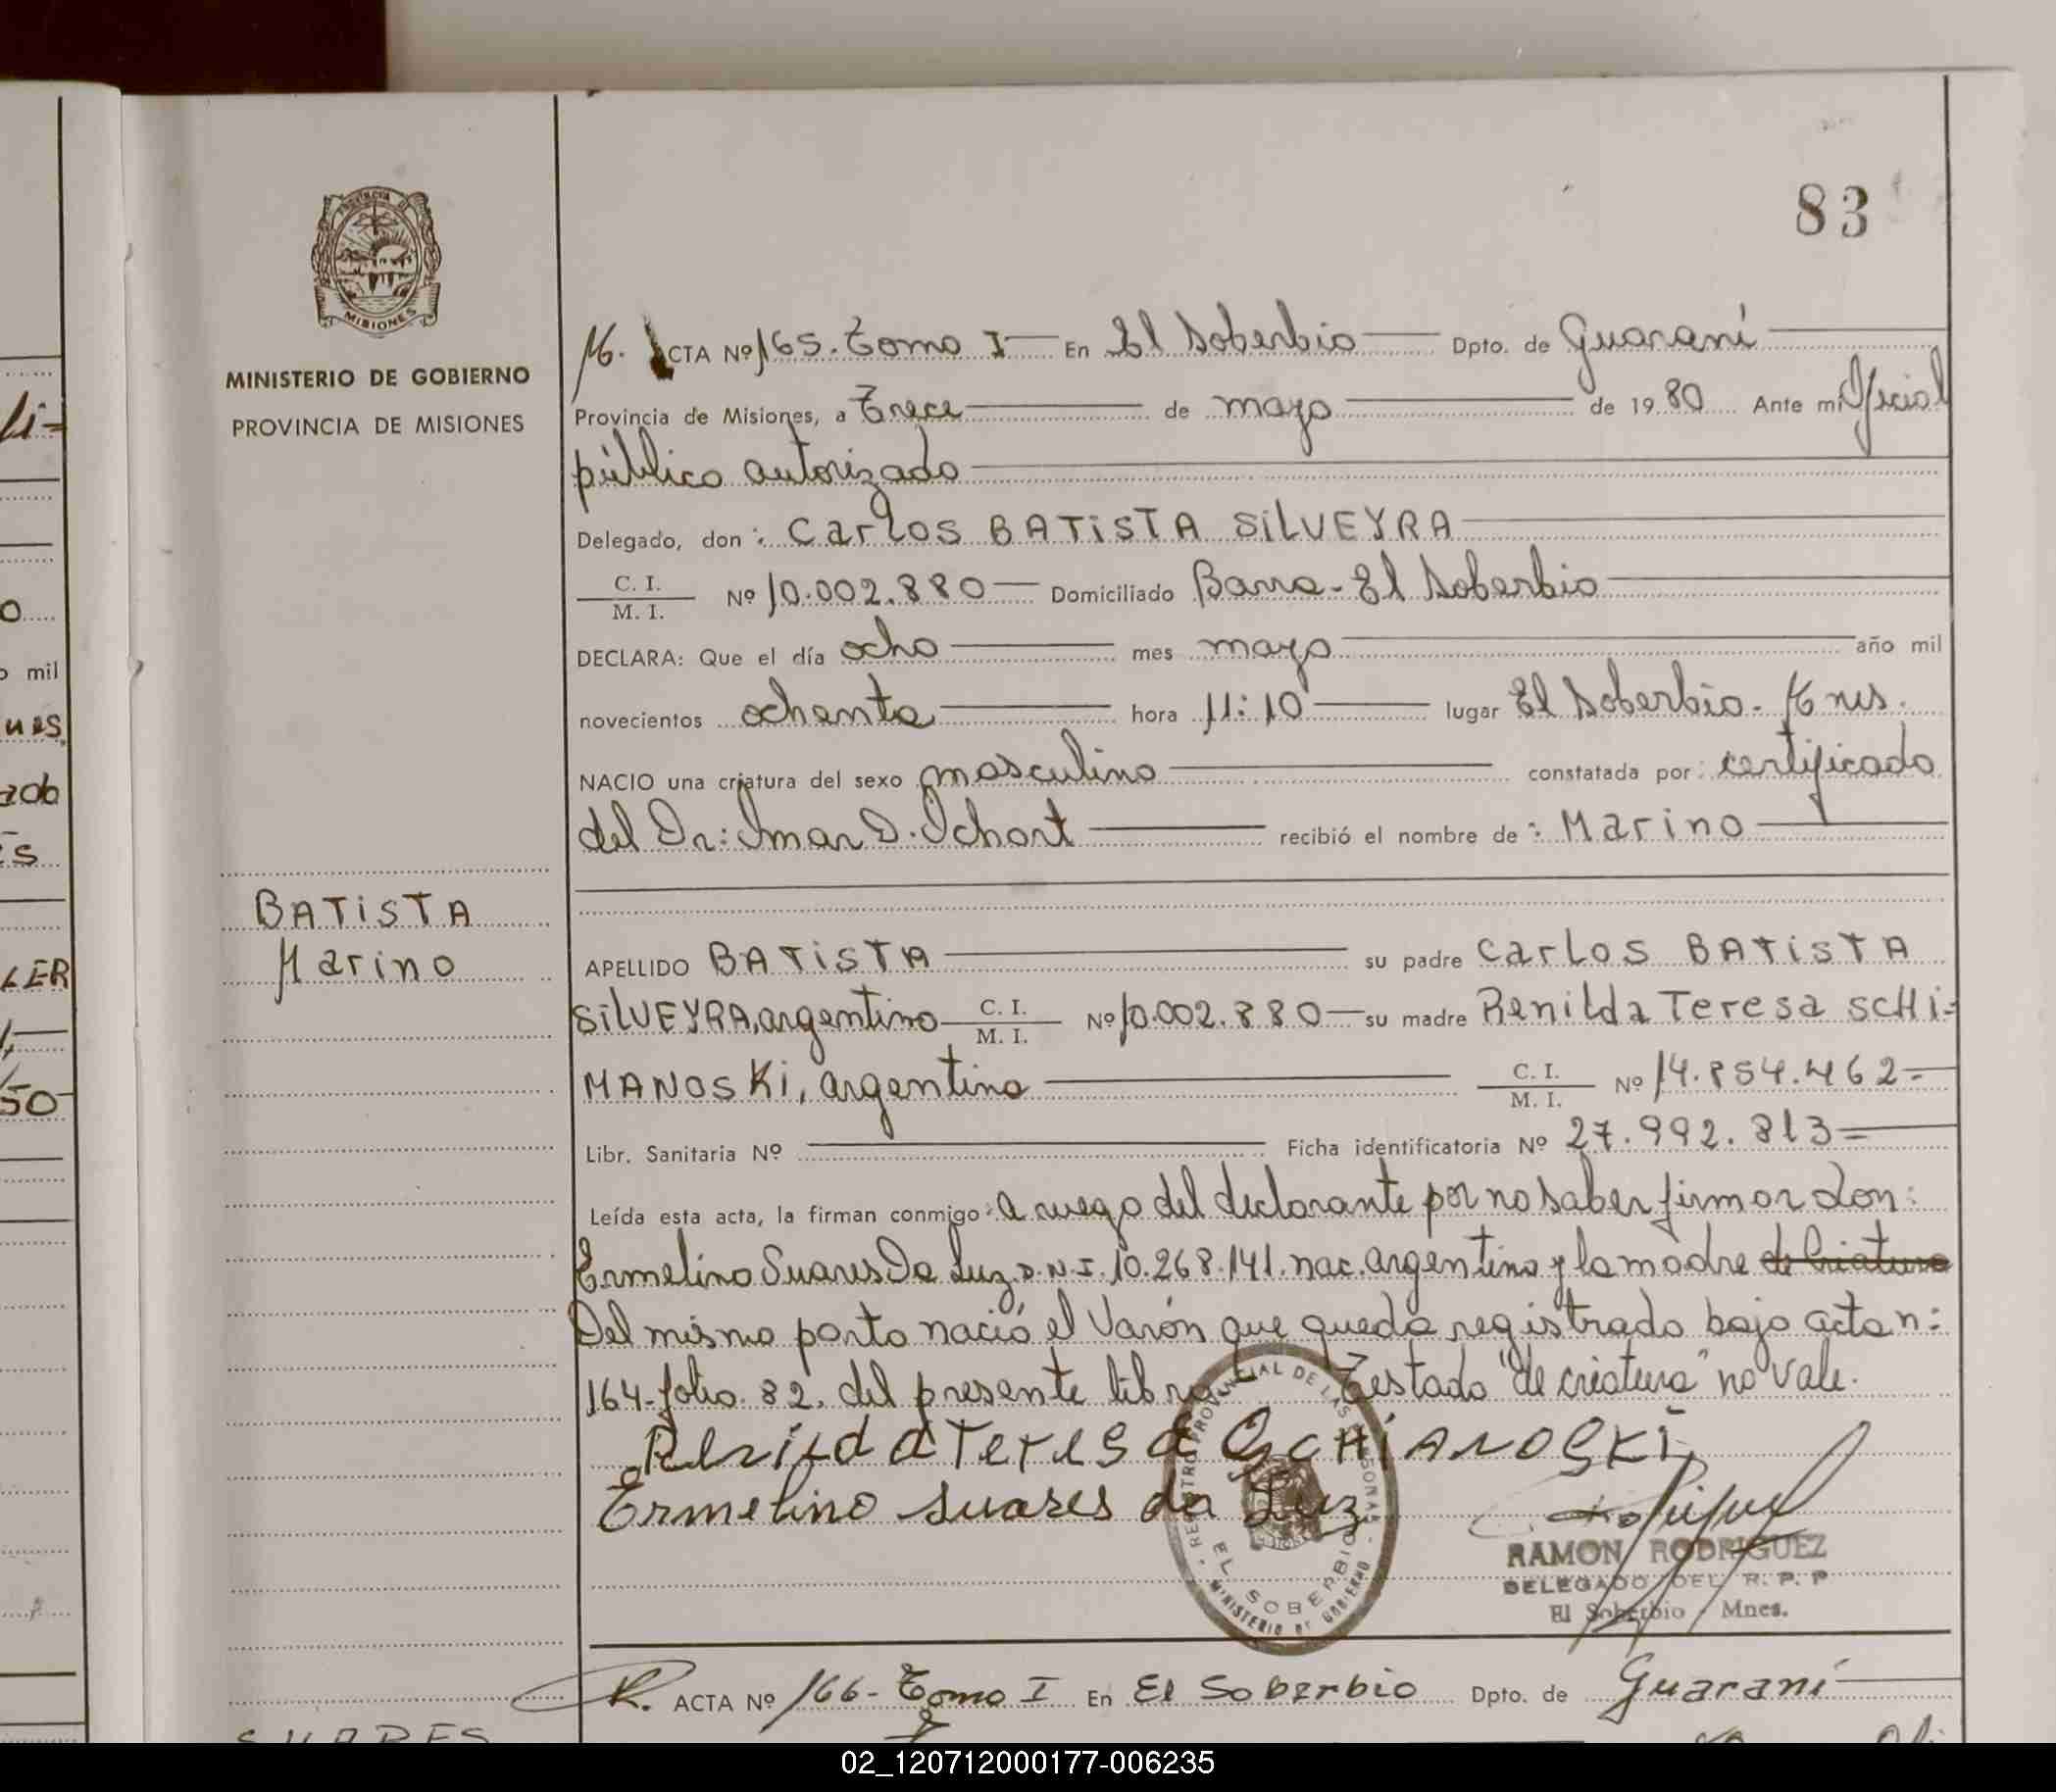 83
MINISTERIO DE GOBIERNO
PROVINCIA DE MISIONES
MISIONES
ACTA Nº 165. Tomo I En El Soberbio Dpto. de Guaraní
Provincia de Misiones, a Trece de mayo de 1980 Ante mi Oficial
público autorizado
Delegado, don: Carlos BATiSTA SiLVEYRA
C. I. / M. I. Nº 10.002.880 Domiciliado Barra-El Soberbio
DECLARA: Que el día ocho mes mayo año mil
novecientos ochenta hora 11:10 lugar El Soberbio.
NACIO una criatura del sexo masculino constatada por: certificado
del Dr: Omar D. recibió el nombre de: Marino
BATiSTA
Marino
APELLIDO BATiSTA su padre Carlos BATiSTA
SiLVEYRA, argentino C. I. / M. I. Nº 10.002.880 su madre Renilda Teresa SCHi=
MANOSKi, argentina C. I. / M. I. Nº 14.854.462=
Libr. Sanitaria Nº Ficha identificatoria Nº 27.992.813=
Leída esta acta, la firman conmigo: a ruego del declarante por no saber firmar don:
Ermelino Suares Da Luz. D.N.I. 10.268.141. nac. argentino y la madre de criatura
Del mismo parto nació el Varón que queda registrado bajo acta n:
164-folio 82. del presente libro. Testado "de criatura" no vale.
Renilda Teresa SCHiANOSKi
Ermelino Suares da Luz
REGISTRO PROVINCIAL DE LAS PERSONAS
EL SOBERBIO
MINISTERIO DE GOBIERNO
RAMON RODRIGUEZ
DELEGADO DEL R. P. P
El Soberbio - Mnes.
R. ACTA Nº 166- Tomo I En El Soberbio Dpto. de Guaraní
SUARES
02_120712000177-006235